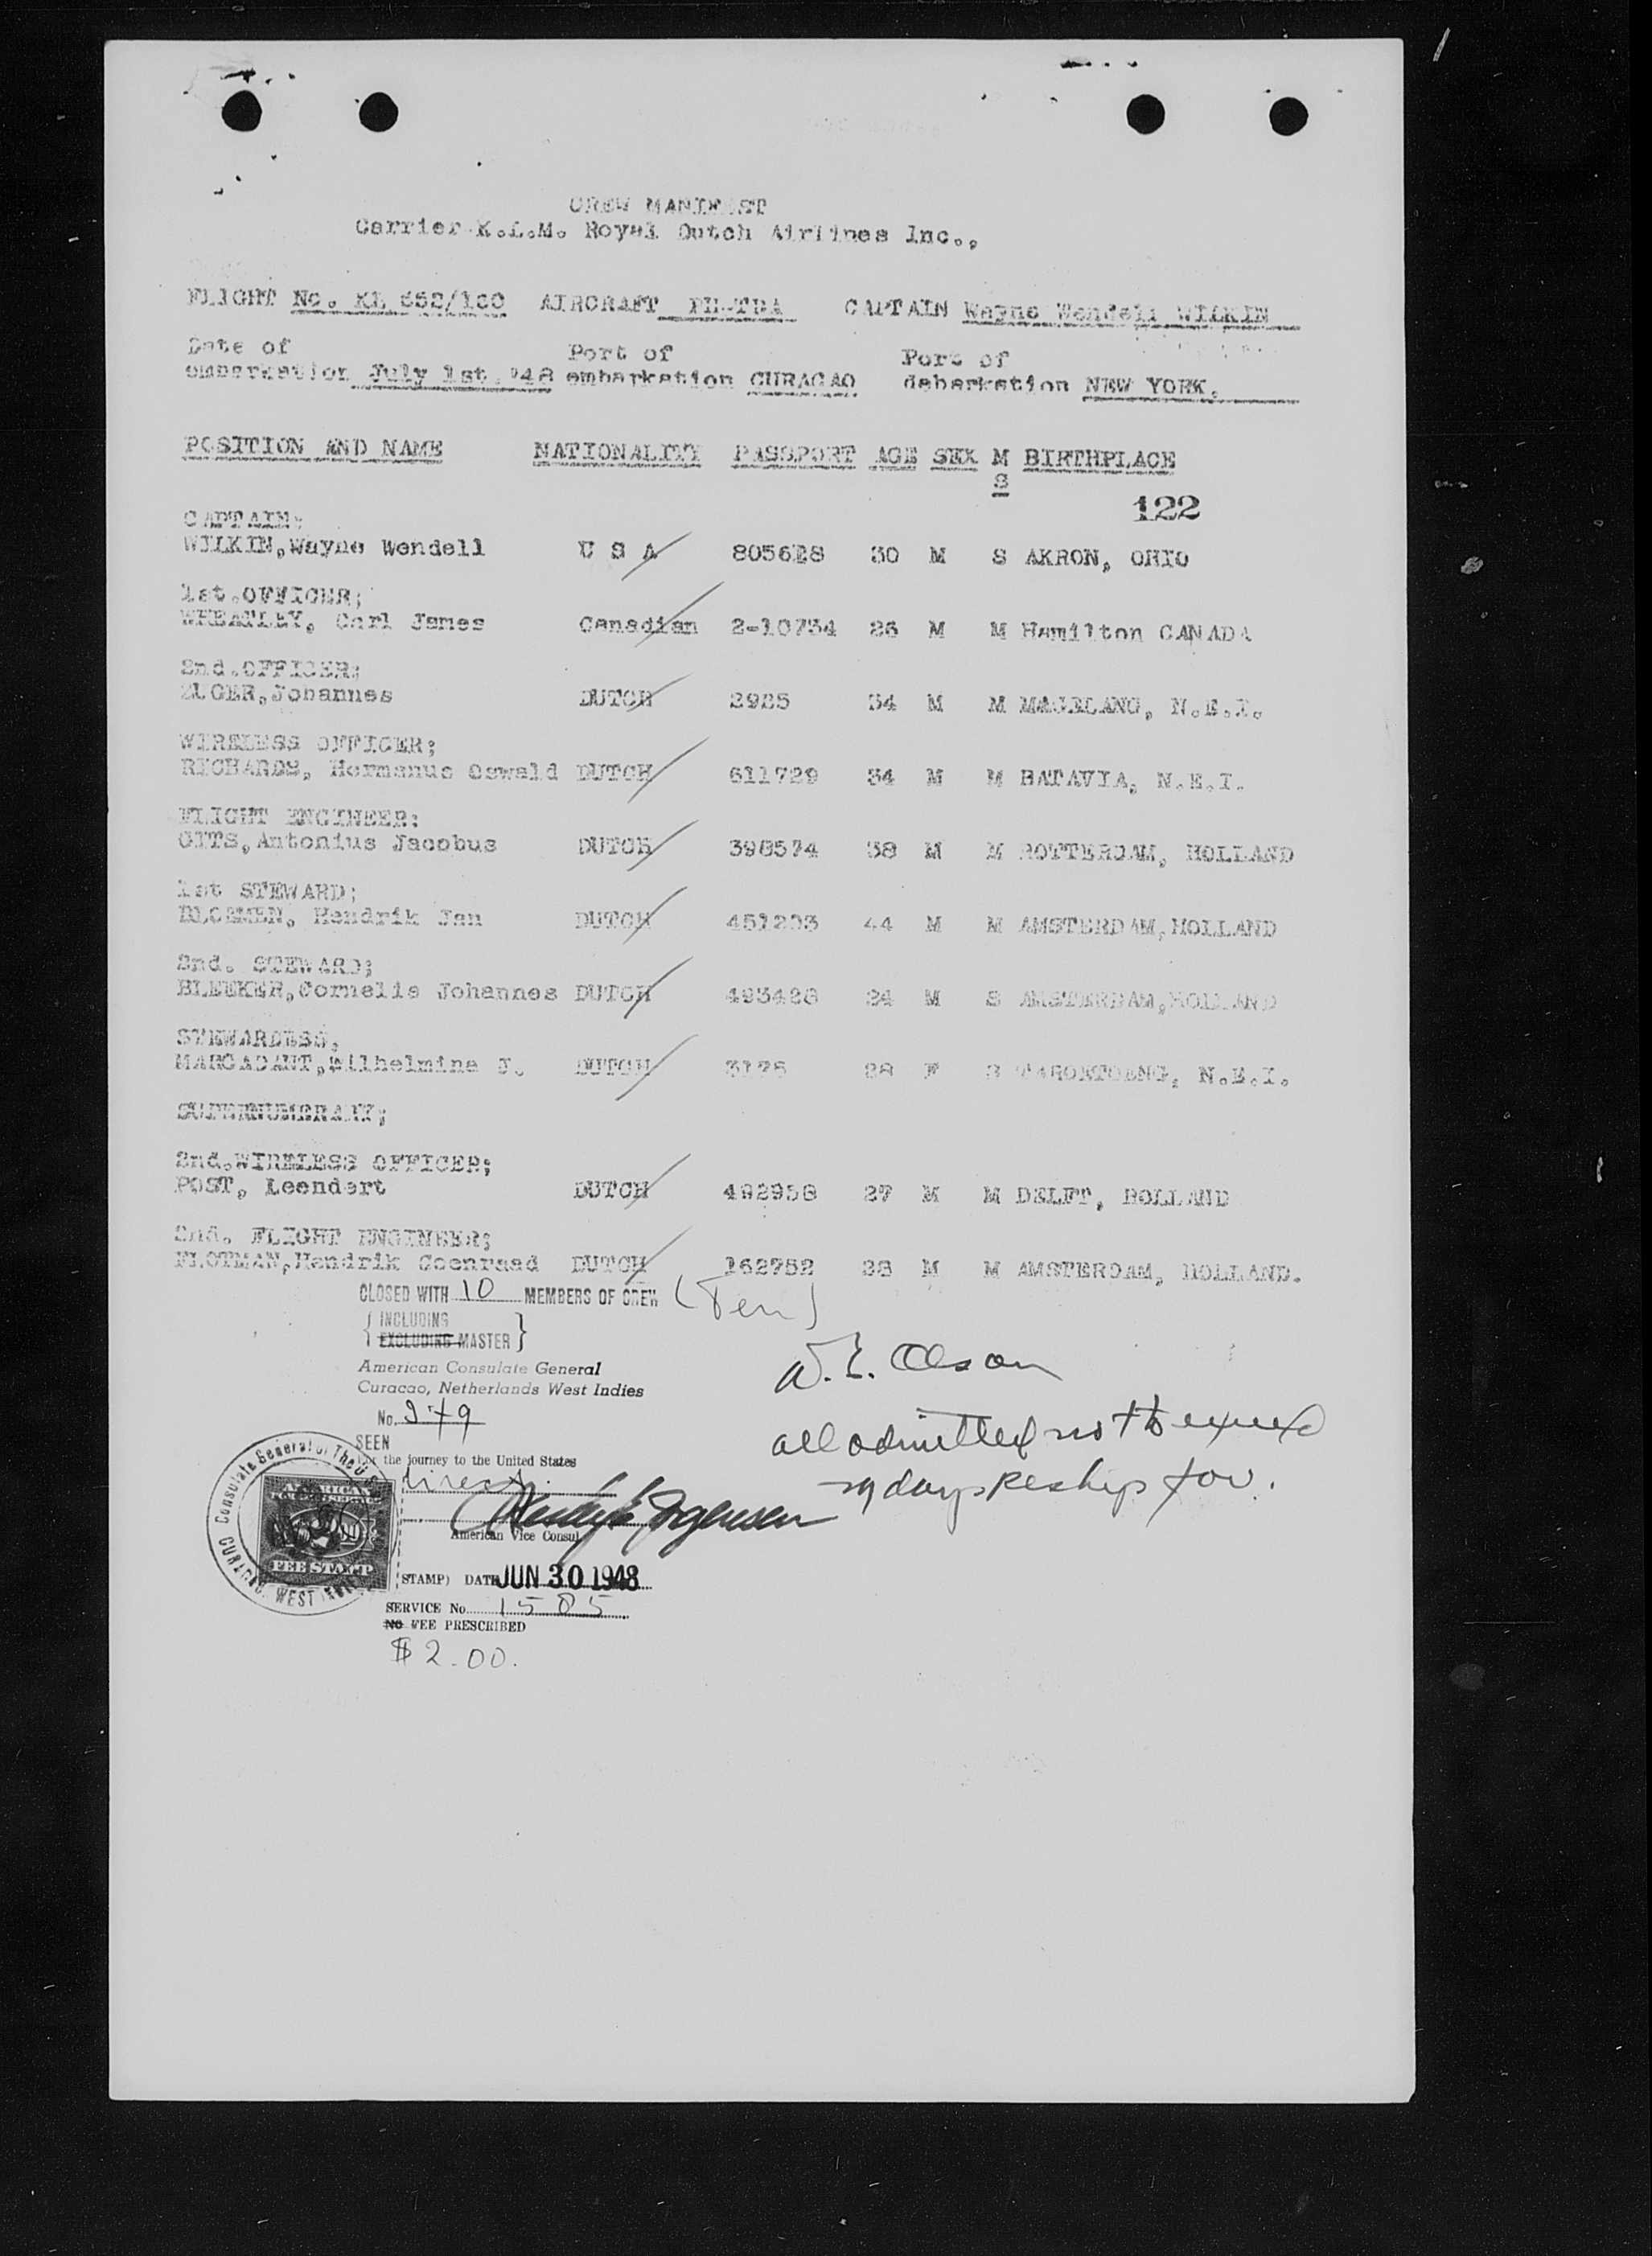 CREW MANIFEST
Carrier K.L.M. Royal Dutch Airlines Inc.,
FLIGHT No. KL 652/100 AIRCRAFT PH-TDA CAPTAIN Wayne Wendell WILKIN
Date of Port of Port of
embarkation July 1st.'48 embarkation CURACAO debarkation NEW YORK.
POSITION AND NAME NATIONALITY PASSPORT AGE SEX M BIRTHPLACE
S
122
CAPTAIN;
WILKIN,Wayne Wendell U S A 805628 30 M S AKRON, OHIO
1st.OFFICER;
WHEATLEY, Carl James Canadian 2-10734 26 M M Hamilton CANADA
2nd.OFFICER;
Johannes DUTCH 2925 34 M M MAGELANG, N.E.I.
WIRELESS OFFICER;
RICHARDS, Hermanus Oswald DUTCH 611729 34 M M BATAVIA, N.E.I.
FLIGHT ENGINEER:
GITS,Antonius Jacobus DUTCH 398574 38 M M ROTTERDAM, HOLLAND
1st STEWARD;
BLOEMEN, Hendrik Jan DUTCH 451203 44 M M AMSTERDAM,HOLLAND
2nd. STEWARD;
BLEEKER,Cornelis Johannes DUTCH 493428 24 M S AMSTERDAM,HOLLAND
STEWARDESS,
MARGADANT,Wilhelmina J. DUTCH 3175 28 F S N.E.I.
SUPERNUMERARY;
2nd.WIRELESS OFFICER;
POST, Leendert DUTCH 492958 27 M M DELFT, HOLLAND
2nd. FLIGHT ENGINEER;
FLOTMAN,Hendrik Coenraad DUTCH 162752 38 M M AMSTERDAM, HOLLAND.
CLOSED WITH 10 MEMBERS OF CREW (Ten)
INCLUDING
EXCLUDING MASTER
American Consulate General
Curacao, Netherlands West Indies
W. E. Olson
No. 979
all admitted not to exceed
SEEN
For the journey to the United States
direct
29 days reship for.
American Vice Consul
FEE STAMP
STAMP) DATE JUN 30 1948
SERVICE No. 1585
NO FEE PRESCRIBED
$2.00.